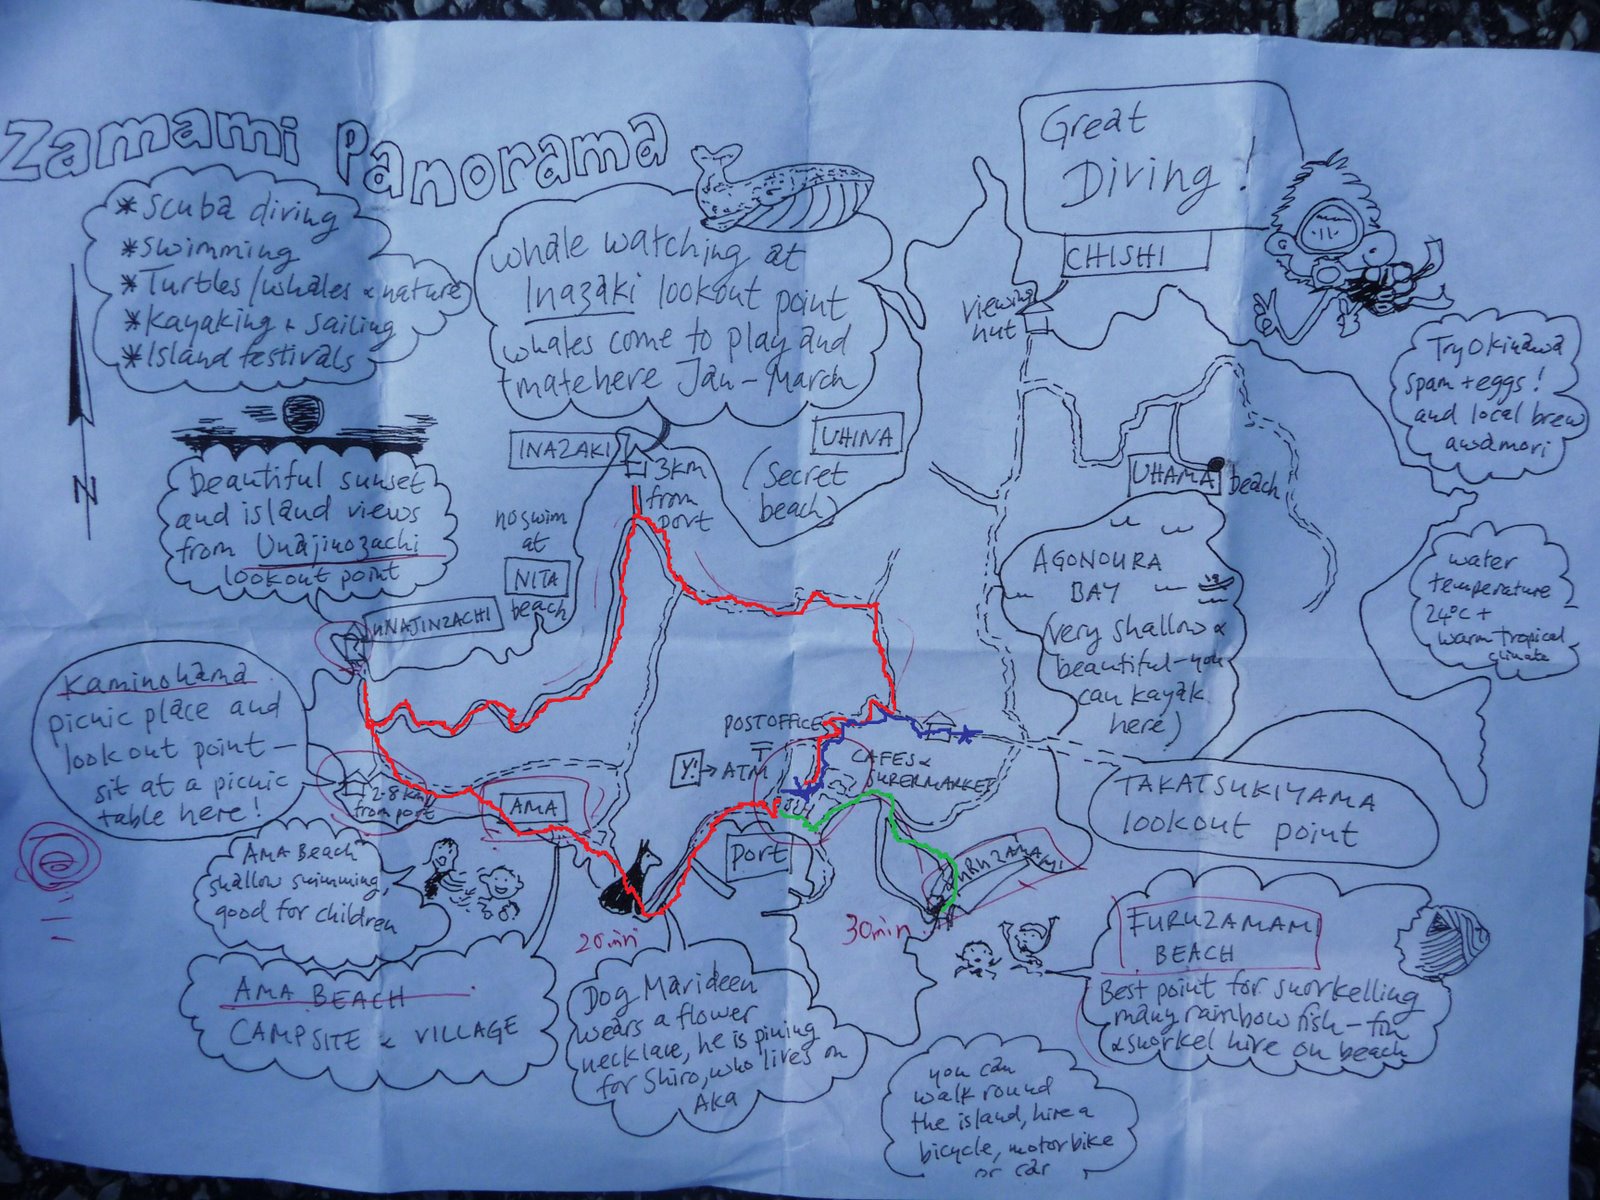 Zamami Panorama
* Scuba diving
* swimming
* Turtles/whales & nature
* Kayaking & sailing
* Island festivals
whale watching at
Inazaki lookout point
whales come to play and
mate here Jan-March
Great
Diving!
CHISHI
viewing
hut
Try Okinawa
spam + eggs!
and local brew
awamori
N
beautiful sunset
and island views
from Unajinozachi
lookout point
INAZAKI
3km
from
port
UHINA
(Secret
beach)
no swim
at
NITA
beach
UHAMA beach
AGONOURA
BAY
(very shallow &
beautiful-you
can kayak
here)
water
temperature
24°c +
warm tropical
climate
UNAJINZACHI
Kaminohama
picnic place and
lookout point—
sit at a picnic
table here!
2-8km
from port
AMA
POST OFFICE
〒
Y! → ATM
CAFES &
SUPERMARKET
port
FURUZAMAMI
TAKATSUKIYAMA
lookout point
AMA Beach
shallow swimming,
good for children
20min
30min
AMA BEACH
CAMPSITE & VILLAGE
Dog Marideen
wears a flower
necklace, he is pining
for Shiro, who lives on
Aka
FURUZAMAMI
BEACH
Best point for snorkelling
many rainbow fish - fin
& snorkel hire on beach
you can
walk round
the island, hire a
bicycle, motorbike
or car